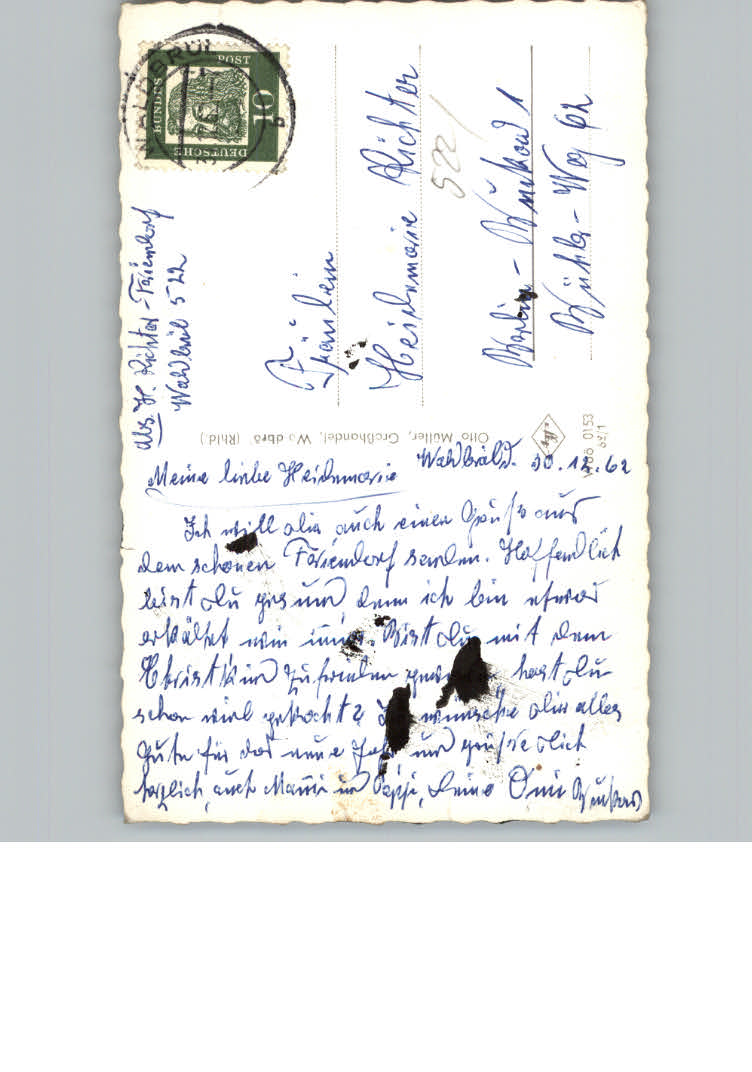 DEUTSCHE
BUNDESPOST
10
WALDBRÖL
b
Abs. H. Richter - Feriendorf
Waldbröl 522
Fräulein
Heidemarie Richter
522/
Berlin - Buckow 1
Weg 62
Otto Müller, Großhandel, Waldbröl (Rhld.)
W 68 0153
62/1
Meine liebe Heidemarie Waldbröl d. 30.12.62
Ich will dir auch einen Gruß aus
dem schönen Feriendorf senden. Hoffendlich
bist du gesund denn ich bin etwas
erkältet wie immer. Bist du mit dem
Christkind zufrieden gewesen hast du
schon viel gekocht? Ich wünsche dir alles
gute für das neue Jahr und grüße dich
herzlich, auch Mammi und Pappi, deine Omi